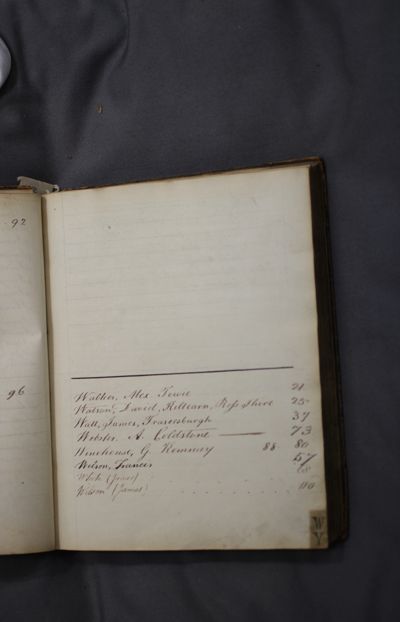 92
96
Walker, Alex Towie 21
Watson, David, Kiltearn, Ross Shire 25
Watt, James, Fraserburgh 37
Webster, A. Coldstone 73
Winehouse, G. Romney 88 80
Wilson, Frances 57
White (James)
Wilson (James) 110
W
Y